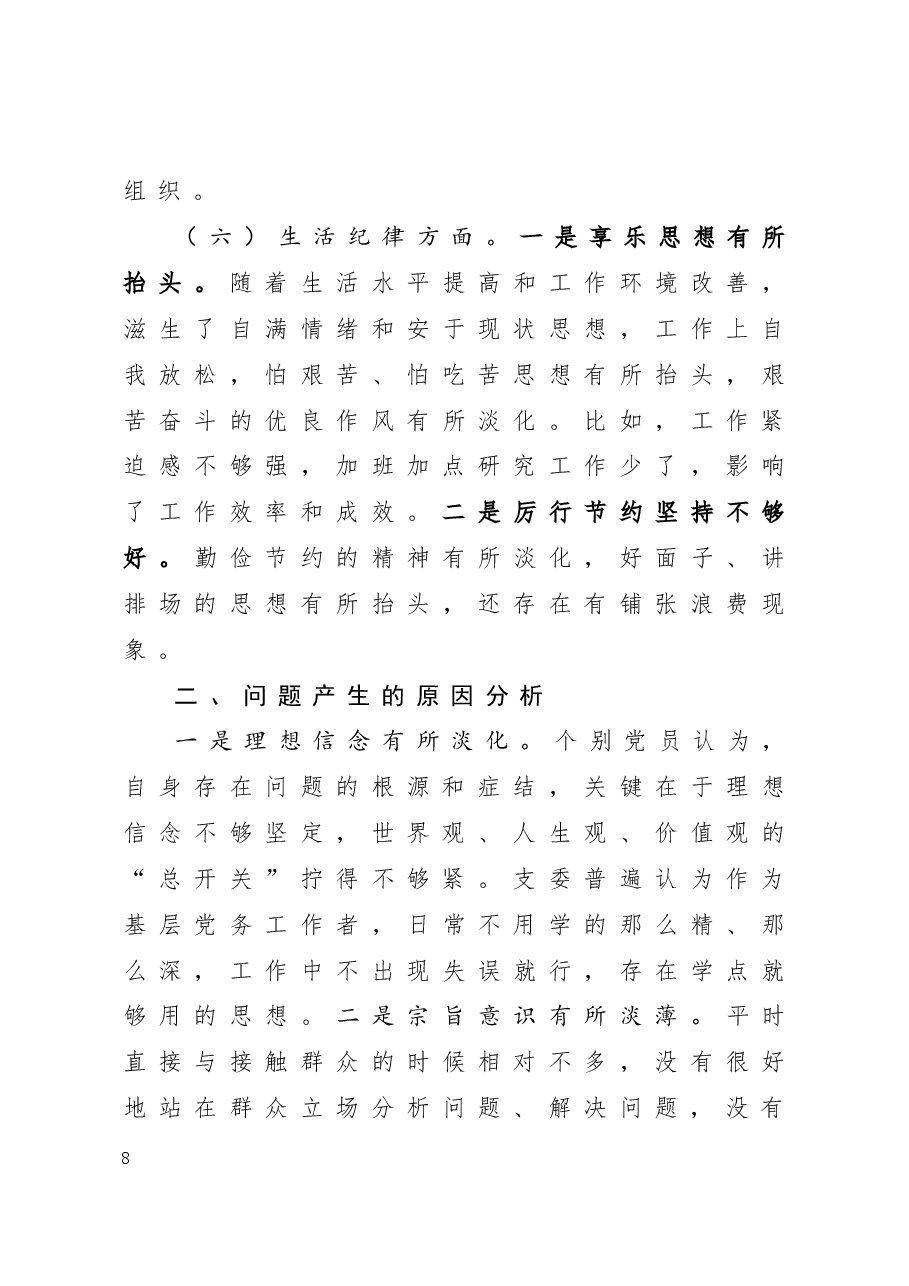 组织。
（六）生活纪律方面。一是享乐思想有所
抬头。随着生活水平提高和工作环境改善，
滋生了自满情绪和安于现状思想，工作上自
我放松，怕艰苦、怕吃苦思想有所抬头，艰
苦奋斗的优良作风有所淡化。比如，工作紧
迫感不够强，加班加点研究工作少了，影响
了工作效率和成效。二是厉行节约坚持不够
好。勤俭节约的精神有所淡化，好面子、讲
排场的思想有所抬头，还存在有铺张浪费现
象。
二、问题产生的原因分析
一是理想信念有所淡化。个别党员认为，
自身存在问题的根源和症结，关键在于理想
信念不够坚定，世界观、人生观、价值观的
“总开关”拧得不够紧。支委普遍认为作为
基层党务工作者，日常不用学的那么精、那
么深，工作中不出现失误就行，存在学点就
够用的思想。二是宗旨意识有所淡薄。平时
直接与接触群众的时候相对不多，没有很好
地站在群众立场分析问题、解决问题，没有
8